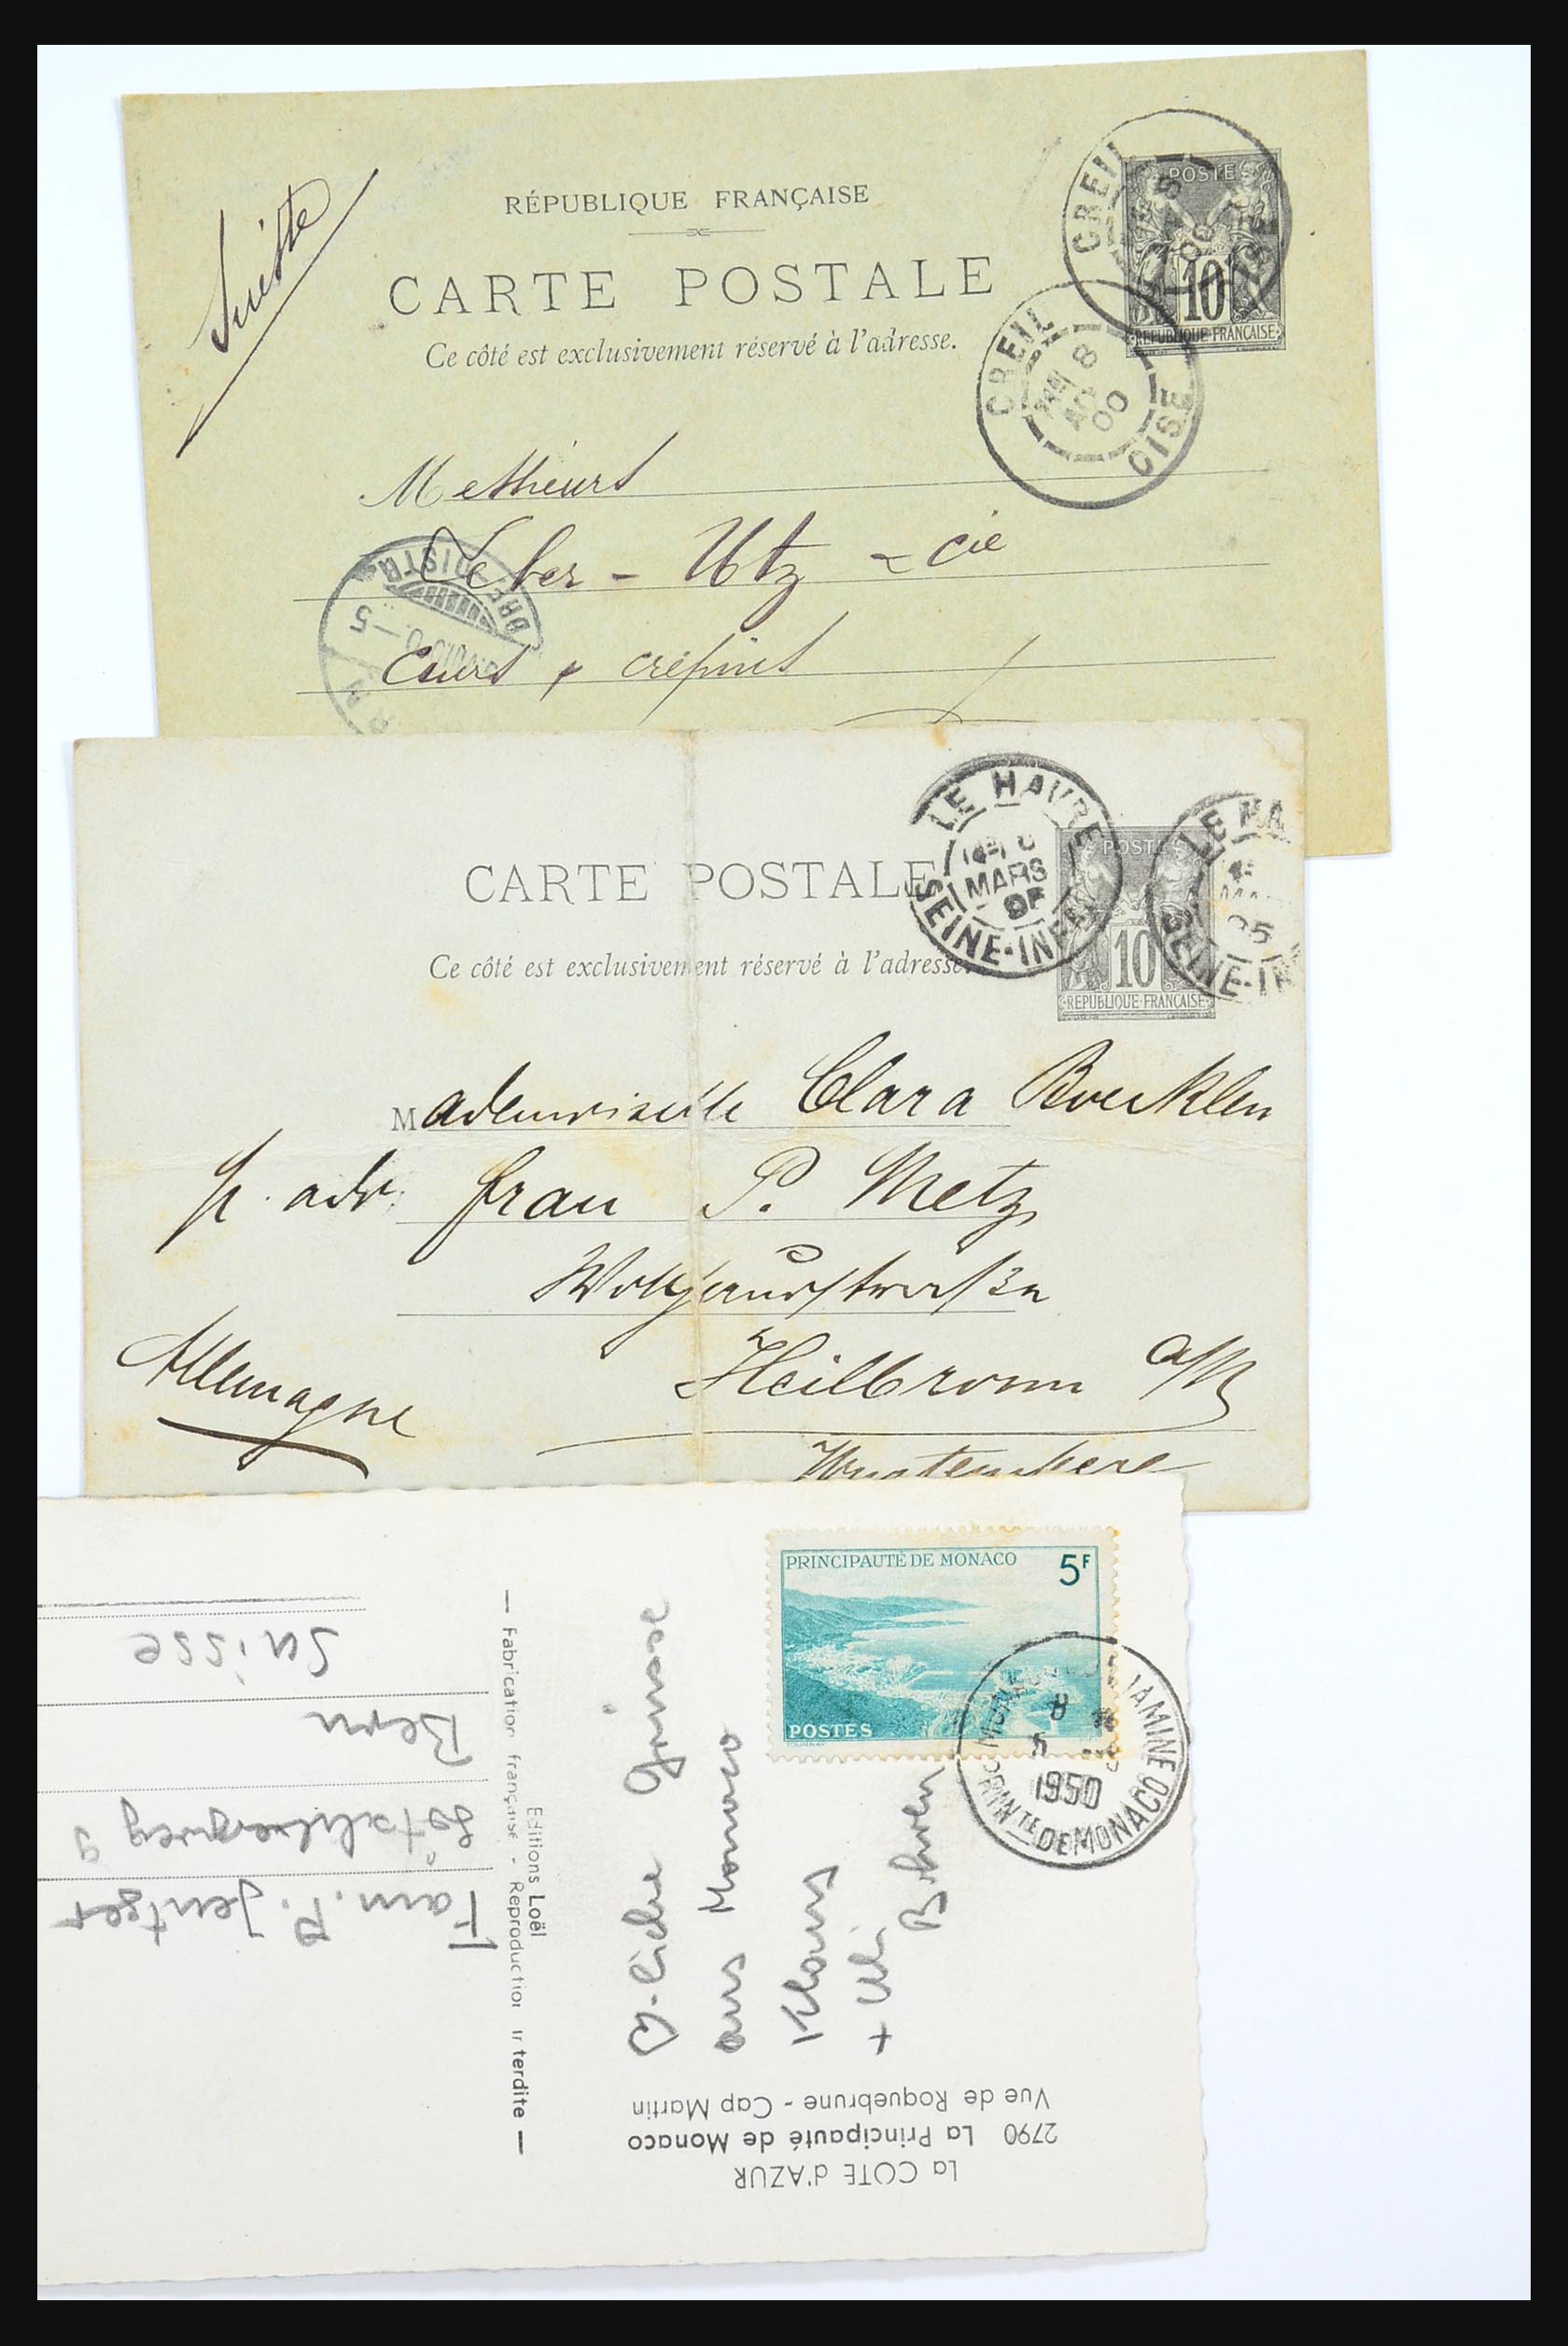 RÉPUBLIQUE FRANÇAISE
CARTE POSTALE
Ce côté est exclusivement réservé à l'adresse.
Suisse
POSTES
10
REPUBLIQUE FRANÇAISE
CREIL
OISE
CREIL
8
00
OISE
Messieurs
Leber - Utz & cie
Cuirs & crépins
CARTE POSTALE
Ce côté est exclusivement réservé à l'adresse.
POSTES
10
REPUBLIQUE FRANÇAISE
LE HAVRE
MARS
95
SEINE-INF
LE HA
95
SEINE-IN
Mademoiselle Clara Boecklen
p. adr. Frau P. Metz
Heilbronn a/N
Allemagne
PRINCIPAUTÉ DE MONACO 5F
POSTES
8
5
1950
PRINTE DE MONACO
Suisse
Bern
Fam. P. Jentzer
— Fabrication française - Reproduction interdite —
Editions Loël
Grüsse
aus Monaco
Klaus
+ Uli
La COTE d'AZUR
2790 La Principauté de Monaco
Vue de Roquebrune - Cap Martin